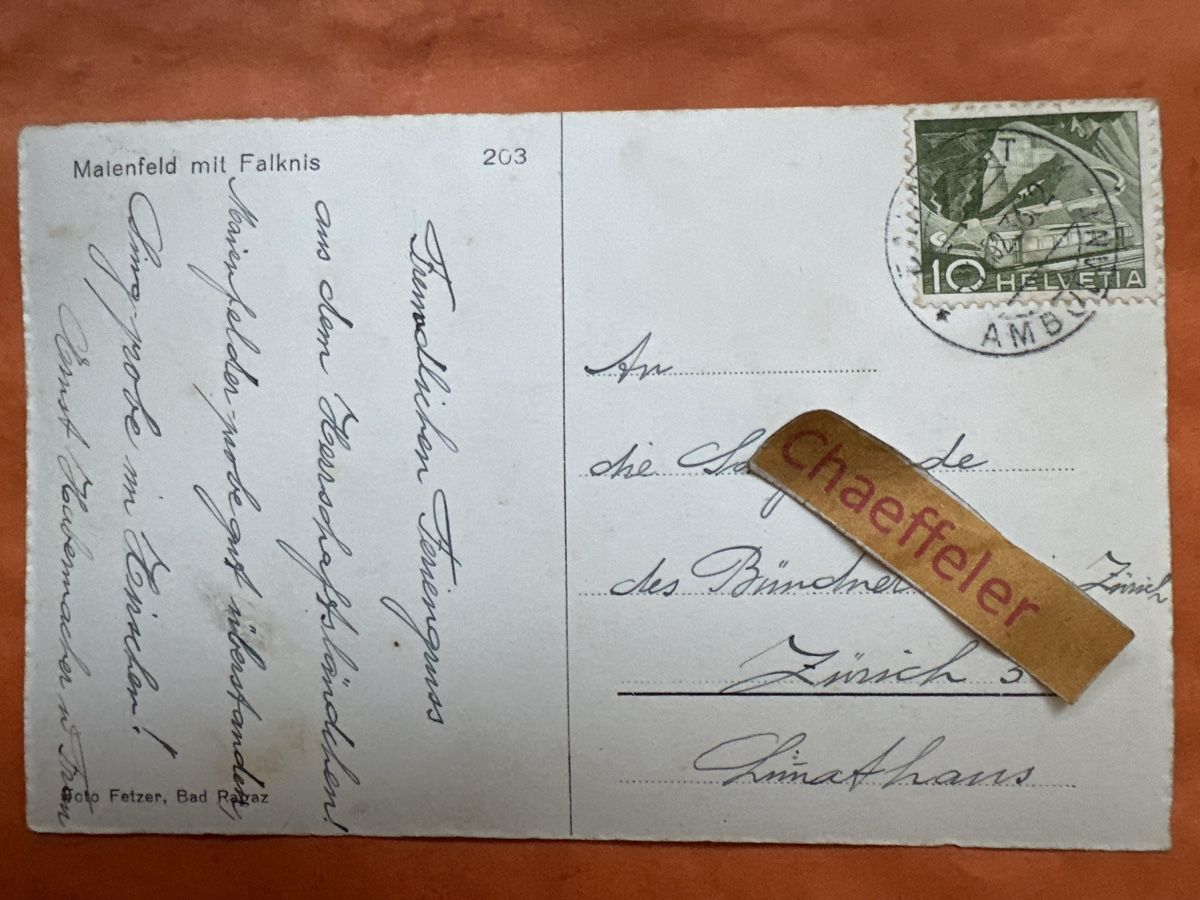 Maienfeld mit Falknis
203
Freundlichen Feriengruss
aus dem Herrschaftsländchen!
Maienfelder-probe gut überstanden,
Sing-probe im Zeichen!
Ernst Habermacher u. Frau
Foto Fetzer, Bad Ragaz
10 HELVETIA
AMBULANT
An
die
de
des Bündner
Zürich
Zürich 5
Limathaus
Chaeffeler